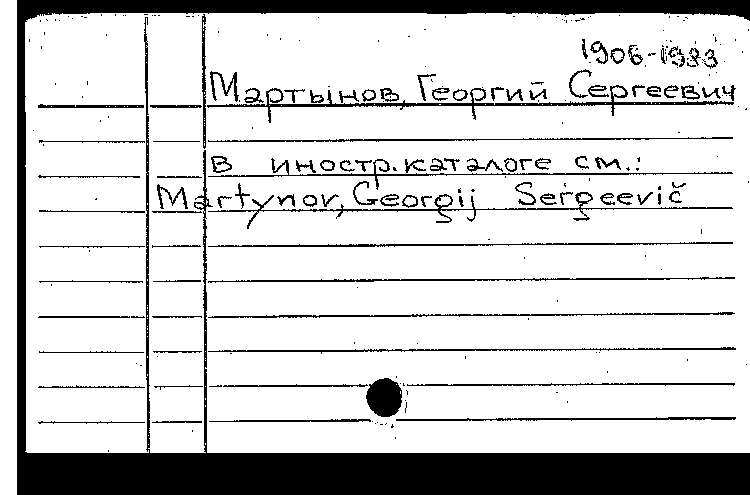 1906-1983
Мартынов, Георгий Сергеевич
В иностр. каталоге см.:
Martynov, Georgij Sergeevič